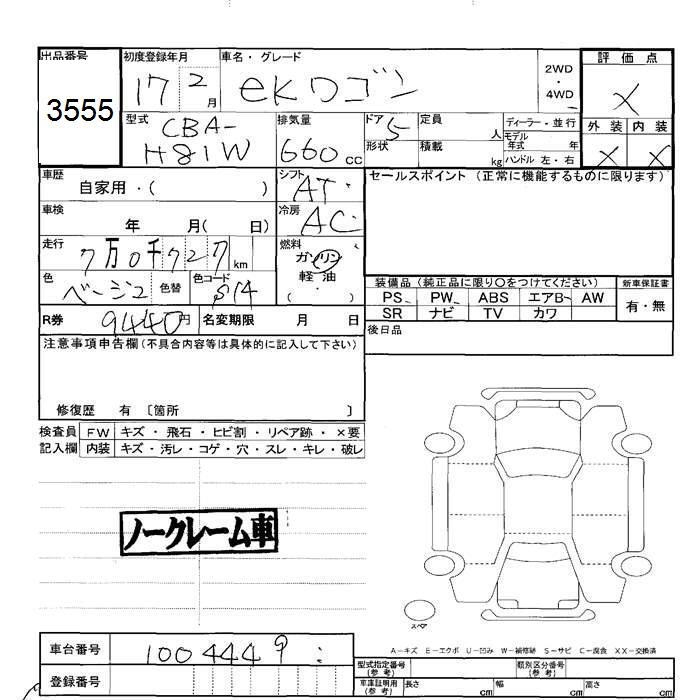 出品番号 初度登録年月 車名・グレード 2WD 評価点
3555 17 2月 eKワゴン ・ 4WD ×
型式 CBA- 排気量 ドア 5 定員 人 ディーラー・並行 外装 内装
H81W 660 cc 形状 積載 kg モデル年式 年 × ×
ハンドル 左・右
車歴 自家用・( ) シフト AT セールスポイント (正常に機能するものに限ります)
車検 年 月( 日) 冷房 AC
走行 7万0千727 km 燃料 ガソリン
軽油
・( )
色 ベージュ 色替 色コード S14 装備品 (純正品に限り○をつけてください) 新車保証書
PS PW ABS エアB AW 有・無
R券 9440円 名変期限 月 日 SR ナビ TV カワ
注意事項申告欄(不具合内容等は具体的に記入して下さい) 後日品
修復歴 有 〔箇所 〕
検査員 FW キズ・飛石・ヒビ割・リペア跡・×要
記入欄 内装 キズ・汚レ・コゲ・穴・スレ・キレ・破レ
ノークレーム車
スペア
A-キズ E-エクボ U-凹み W-補修跡 S-サビ C-腐食 XX-交換済
車台番号 1004449 型式指定番号(参考) 類別区分番号(参考)
登録番号 車庫証明用(参考) 長さ cm 幅 cm 高さ cm